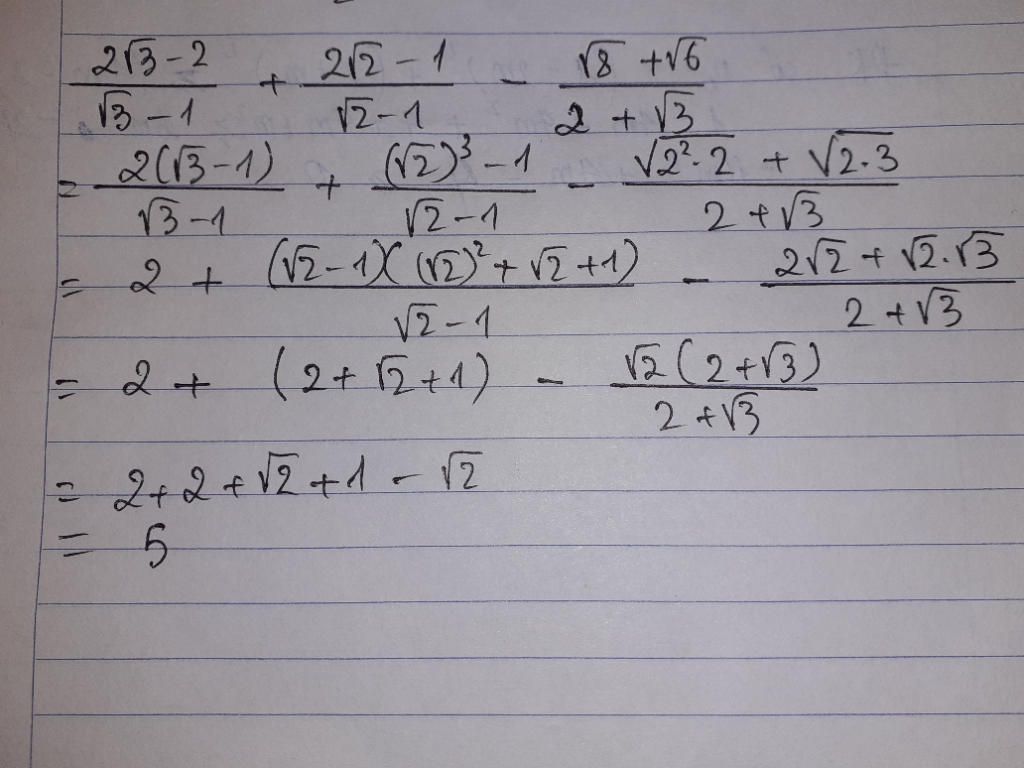 (2√3 - 2)/(√3 - 1) + (2√2 - 1)/(√2 - 1) - (√8 + √6)/(2 + √3)
= 2(√3 - 1)/(√3 - 1) + ((√2)³ - 1)/(√2 - 1) - (√(2².2) + √(2.3))/(2 + √3)
= 2 + (√2 - 1)((√2)² + √2 + 1)/(√2 - 1) - (2√2 + √2.√3)/(2 + √3)
= 2 + (2 + √2 + 1) - √2(2 + √3)/(2 + √3)
= 2 + 2 + √2 + 1 - √2
= 5